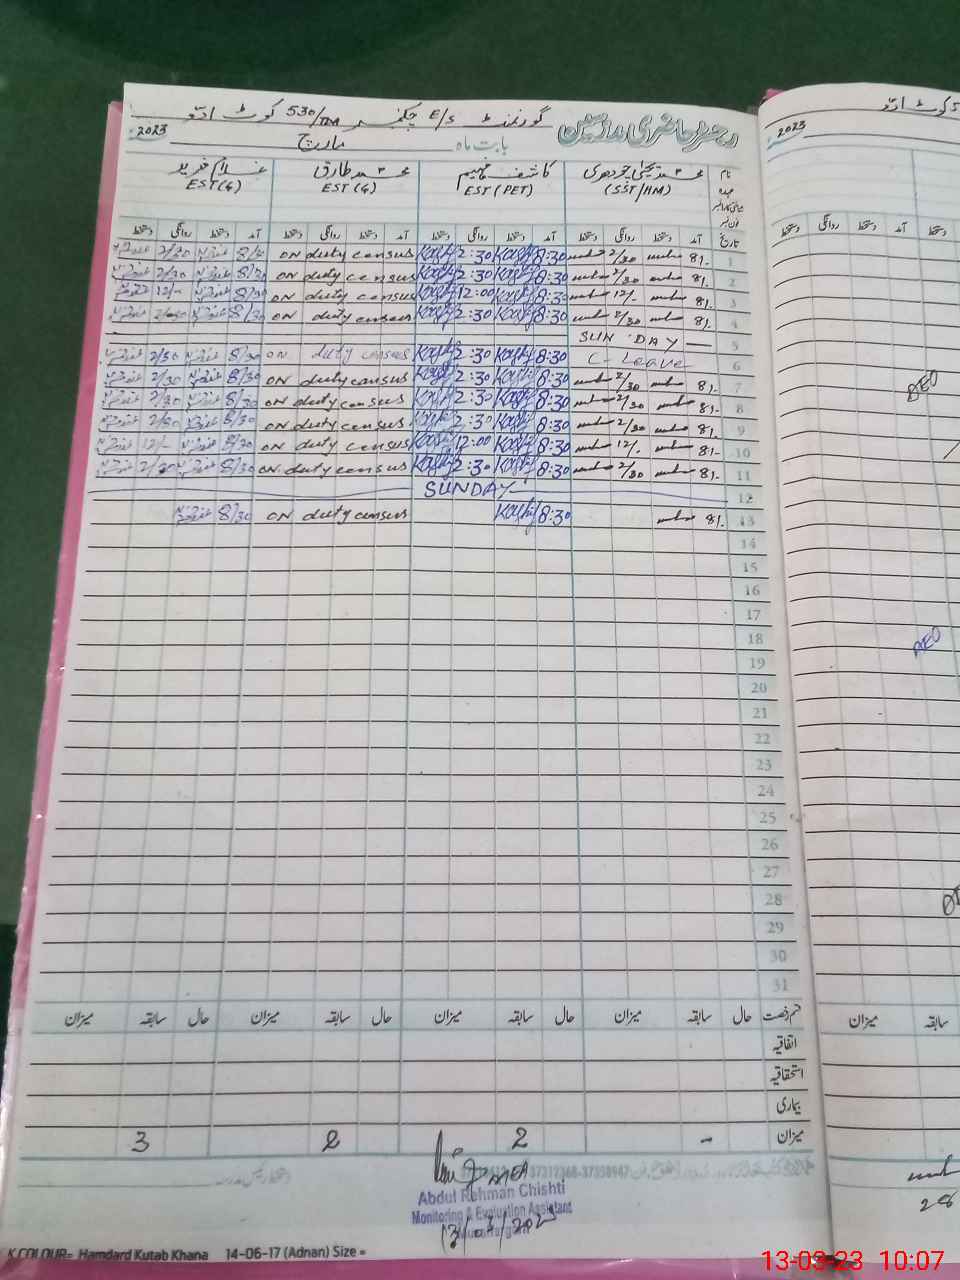 رجسٹر حاضری ملازمین گورنمنٹ E/S چکنمبر 530/TDA کوٹ ادّو
بابت ماہ مارچ 2023
نام محمد یحییٰ چوہدری کاشف فہیم محمد طارق غلام فرید
عہدہ (SST/HM) EST (PET) EST (G) EST (G)
تاریخ آمد دستخط روانگی دستخط آمد دستخط روانگی دستخط آمد دستخط روانگی دستخط آمد دستخط روانگی دستخط
1 8/- 2/30 8:30 Kashif 2:30 Kashif ON duty census 8/30 2/30
2 8/- 2/30 8:30 Kashif 2:30 Kashif ON duty census 8/30 2/30
3 8/- 12/- 8:30 Kashif 12:00 Kashif ON duty census 8/30 12/-
4 8/- 2/30 8:30 Kashif 2:30 Kashif ON duty census 8/30
5 SUN DAY
6 C-Leave 8:30 Kashif 2:30 Kashif ON duty census 8/30 2/30
7 8/- 2/30 8:30 Kashif 2:30 Kashif ON duty census 8/30 2/30
8 8/- 2/30 8:30 Kashif 2:30 Kashif ON duty census 8/30 2/30
9 8/- 2/30 8:30 Kashif 2:30 Kashif ON duty census 8/30 2/30
10 8/- 12/- 8:30 Kashif 12:00 Kashif ON duty census 8/30 12/-
11 8/- 2/30 8:30 Kashif 2:30 Kashif ON duty census 8/30 2/30
12 SUNDAY
13 8/- 8:30 Kashif ON duty census 8/30
14
15
16
17
18
19
20
21
22
23
24
25
26
27
28
29
30
31
قسم رخصت حال سابقہ میزان حال سابقہ میزان حال سابقہ میزان حال سابقہ میزان
اتفاقیہ
استحقاقیہ
بیماری
میزان - 2 2 3
MEA
Abdul Rehman Chishti
Monitoring & Evaluation Assistant
Muzaffargarh
13/03/2023
K.COLOUR= Hamdard Kutab Khana 14-06-17 (Adnan) Size =
2023
کوٹ ادّو
دستخط آمد روانگی دستخط
AEO
AEO
سابقہ میزان
28
13-03-23 10:07